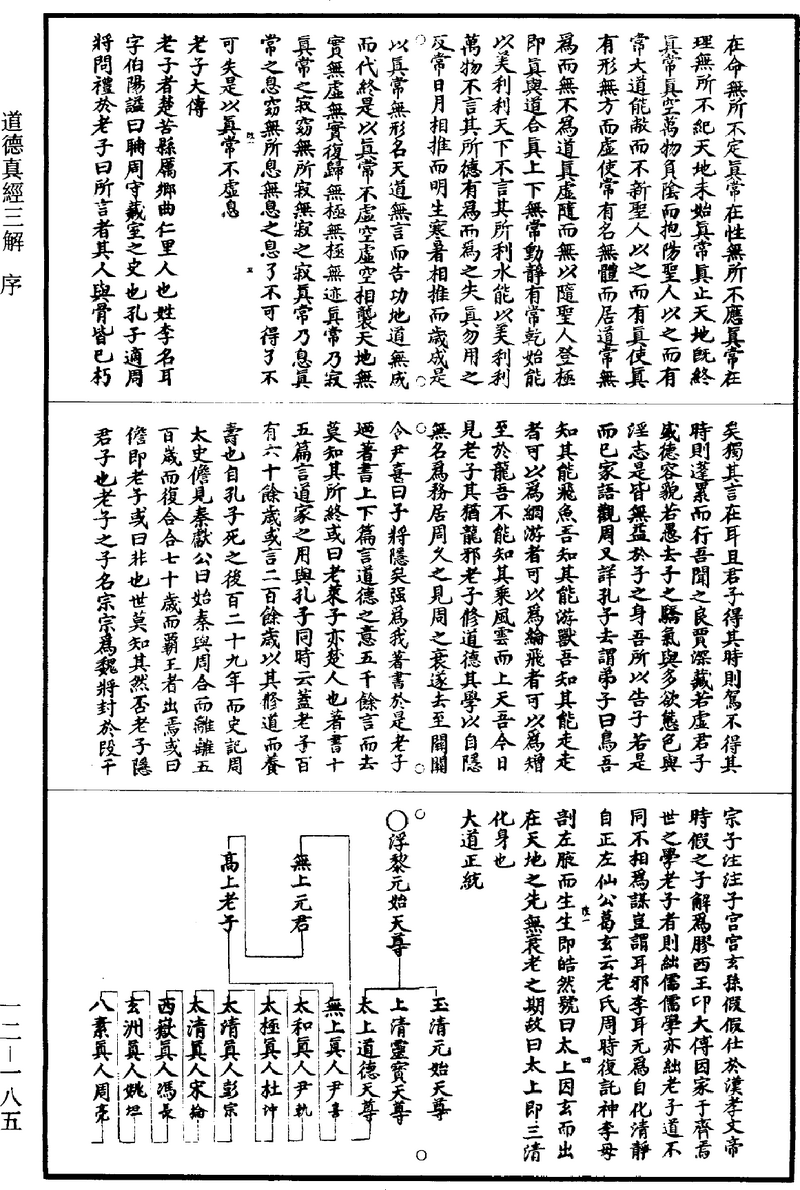 在命無所不定真常在性無所不應真常在
理無所不紀天地未始真常真止天地既終
真常真空萬物負陰而抱陽聖人以之而有
常大道能敝而不新聖人以之而有真使真
有形無方而虛使常有名無體而居道常無
為而無不為道真虛隨而無以隨聖人登極
即真與道合真上下無常動靜有常乾始能
以美利利天下不言其所利水能以美利利
萬物不言其所德有為而為之失真勿用之
反常日月相推而明生寒暑相推而歲成是
以真常無形名天道無言而告功地道無成
而代終是以真常不虛空虛空相襲天地無
實無虛無實復歸無極無極無迹真常乃寂
真常之寂窈無所寂無寂之寂真常乃息真
常之息窈無所息無息之息了不可得了不
可失是以真常不虛息
老子大傳
老子者楚苦縣厲鄉曲仁里人也姓李名耳
字伯陽謚曰聃周守藏室之史也孔子適周
將問禮於老子曰所言者其人與骨皆已朽
矣獨其言在耳且君子得其時則駕不得其
時則蓬累而行吾聞之良賈深藏若虛君子
盛德容貌若愚去子之驕氣與多欲態色與
淫志是皆無益於子之身吾所以告子若是
而已家語觀周又詳孔子去謂弟子曰鳥吾
知其能飛魚吾知其能游獸吾知其能走走
者可以為網游者可以為綸飛者可以為矰
至於龍吾不能知其乘風雲而上天吾今日
見老子其猶龍邪老子修道德其學以自隱
無名為務居周久之見周之衰遂去至關關
令尹喜曰子將隱矣强為我著書於是老子
迺著書上下篇言道德之意五千餘言而去
莫知其所終或曰老萊子亦楚人也著書十
五篇言道家之用與孔子同時云蓋老子百
有六十餘歲或言二百餘歲以其修道而養
壽也自孔子死之後百二十九年而史記周
太史儋見秦獻公曰始秦與周合而離離五
百歲而復合合七十歲而霸王者出焉或曰
儋即老子或曰非也世莫知其然否老子隱
君子也老子之子名宗宗為魏將封於段干
宗子注注子宮宮玄孫假假仕於漢孝文帝
時假之子解為膠西王卬大傅因家于齊焉
世之學老子者則絀儒儒學亦絀老子道不
同不相為謀豈謂耳邪李耳无為自化清靜
自正左仙公葛玄云老氏周時復託神李母
剖左腋而生生即皓然號曰太上因玄而出
在天地之先無衰老之期故曰太上即三清
化身也
大道正統
浮黎元始天尊
無上元君
高上老子
玉清元始天尊
上清靈寶天尊
太上道德天尊
無上真人尹喜
太和真人尹軌
太極真人杜冲
太清真人彭宗
太清真人宋倫
西嶽真人馮長
玄洲真人姚坦
八素真人周亮
道德真經三解 序
一二—一八五